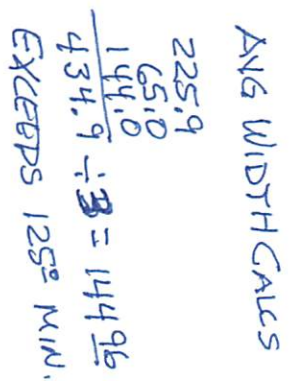 AVG WIDTH CALCS
225.9
65.0
144.0
434.9 ÷ 3 = 144.96
EXCEEDS 125º MIN.